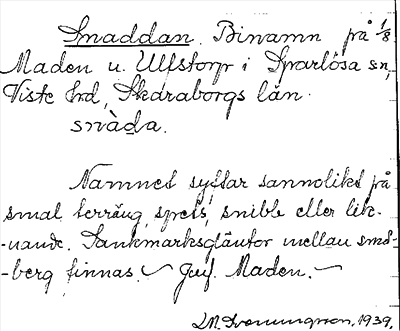 Snaddan. Binamn på 1/8
Maden u. Ulfstorp i Sparlösa sn,
Viste hrd, Skaraborgs län.
snàda.
Namnet syftar sannolikt på
smal terräng, spets, snibb eller lik-
-nande. Sankmarksgläntor mellan små-
-berg finnas. Jmf. Maden.
1939.